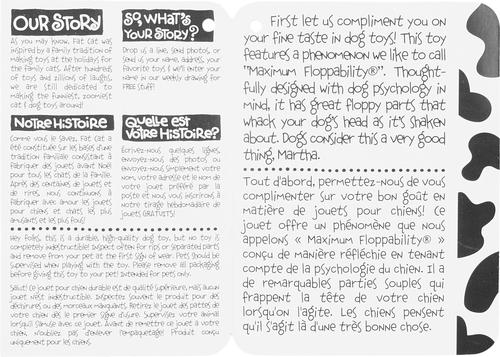 OUR STORY
As you may know, Fat Cat was
inspired by a family tradition of
making toys at the holidays for
the family cats. After hundreds
of toys and zillions of laughs,
we are still dedicated to
making the funniest, zoomiest
cat & dog toys around!
SO, WHAT'S
YOUR STORY?
Drop us a line, send photos, or
send us your name, address, your
favorite toys & we'll enter your
name in our weekly drawing for
FREE stuff!
NOTRE HISTOIRE
Comme vous le savez, Fat Cat a
été constituée sur les bases d'une
tradition familiale consistant à
fabriquer des jouets avant Noël
pour tous les chats de la famille.
Après des centaines de jouets et
de rires, nous continuons à
fabriquer avec amour les jouets
pour chiens et chats les plus
amusants et les plus fous!
QUELLE EST
VOTRE HISTOIRE?
Écrivez-nous quelques lignes,
envoyez-nous des photos ou
envoyez-nous simplement votre
nom, votre adresse et le nom de
votre jouet préféré par la
poste et nous vous inscrirons à
notre tirage hebdomadaire de
jouets GRATUITS!
Hey folks, this is a durable, high-quality dog toy, but no toy is
completely indestructible! Inspect often for rips or separated parts,
and remove from your pet at the first sign of wear. Pets should be
supervised when playing with the toy. Please remove all packaging
before giving this toy to your pet! Intended for pets only.
Salut! Ce jouet pour chien durable est de qualité supérieure, mais aucun
jouet n'est indestructible. Inspectez souvent le produit pour des
déchirures ou des morceaux manquants. Retirez le jouet des pattes de
votre chien dès le premier signe d'usure. Supervisez votre animal
lorsqu'il s'amuse avec ce jouet. Avant de remettre ce jouet à votre
chien, n'oubliez pas d'enlever l'empaquetage! Produit conçu
uniquement pour les chiens.
First let us compliment you on
your fine taste in dog toys! This toy
features a phenomenon we like to call
"Maximum Floppability®". Thought-
fully designed with dog psychology in
mind, it has great floppy parts that
whack your dog's head as it's shaken
about. Dogs consider this a very good
thing, Martha.
Tout d'abord, permettez-nous de vous
complimenter sur votre bon goût en
matière de jouets pour chiens! Ce
jouet offre un phénomène que nous
appelons « Maximum Floppability® »
conçu de manière réfléchie en tenant
compte de la psychologie du chien. Il a
de remarquables parties souples qui
frappent la tête de votre chien
lorsqu'on l'agite. Les chiens pensent
qu'il s'agit là d'une très bonne chose.